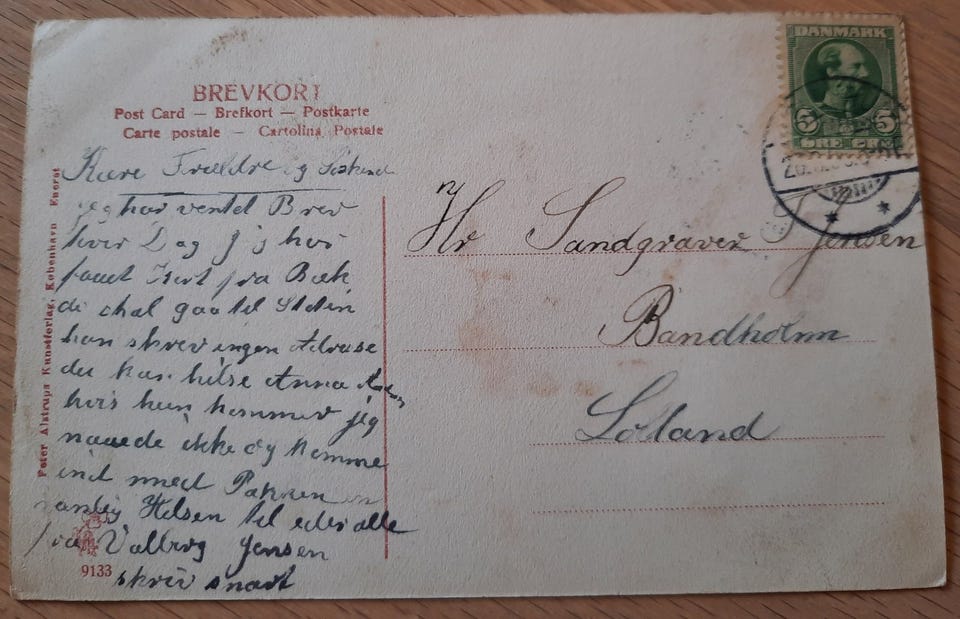 BREVKORT
Post Card — Brefkort — Postkarte
Carte postale — Cartolina Postale
DANMARK
5 5
ØRE
Kære Forældre og Søskend
jeg har ventet Brev
hver Dag Jeg har
faaet Kort fra Bæk
de skal gaa til Stetin
han skrev ingen Adrase
du kan hilse Anna
hvis hun kommer jeg
naaede ikke og komme
ind med Pakken en
venlig Hilsen til eder alle
fra Valborg Jensen
skriv snart
Hr Sandgraver J Jensen
Bandholm
Lolland
Peter Alstrups Kunstforlag, København Eneret
9133